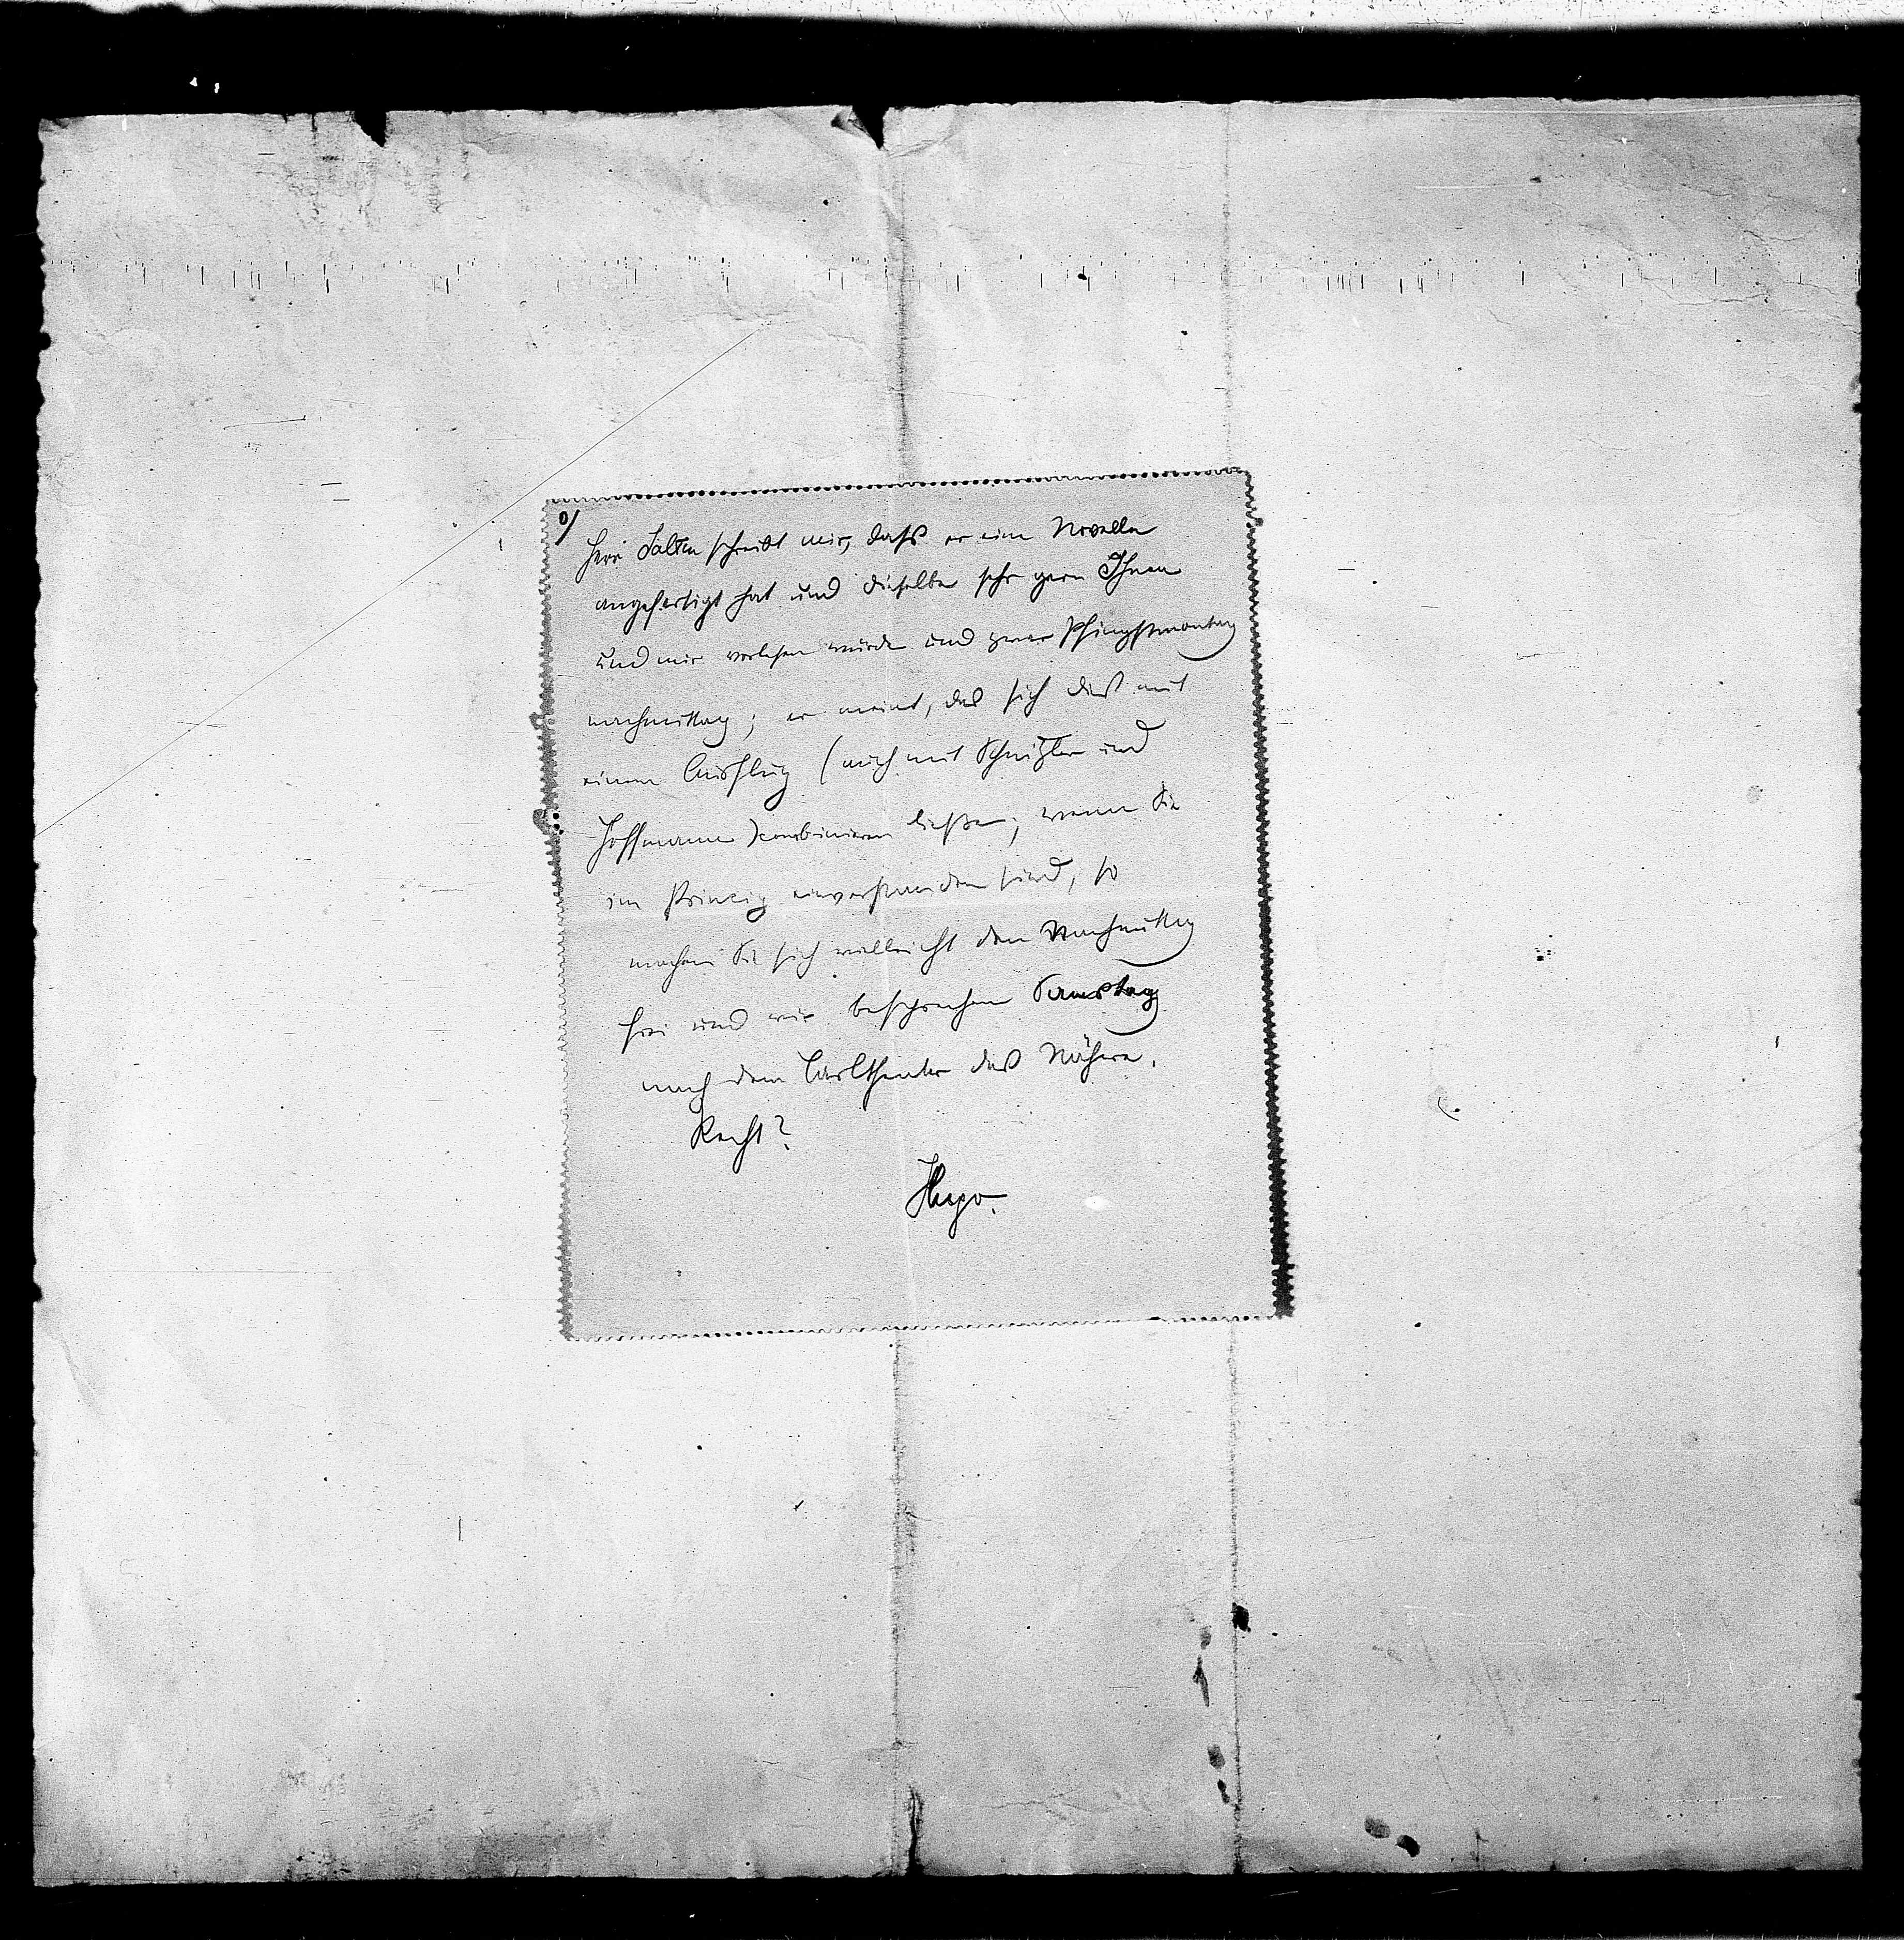 0/
Herr Salten schreibt mir, dass er eine Novelle
angefertigt hat und dieselbe sehr gern Ihnen
und mir vorlesen würde und zwar Pfingstmontag
nachmittag; er meint, das sich dies mit
einem Ausflug (auch mit Schnitzler und
Hoffmann) combinieren ließe; wenn Sie
im Princip einverstanden sind, so
machen Sie sich vielleicht den Nachmittag
frei und wir besprechen Samstag
nach dem Carltheater das Nähere.
Recht?
Hugo.